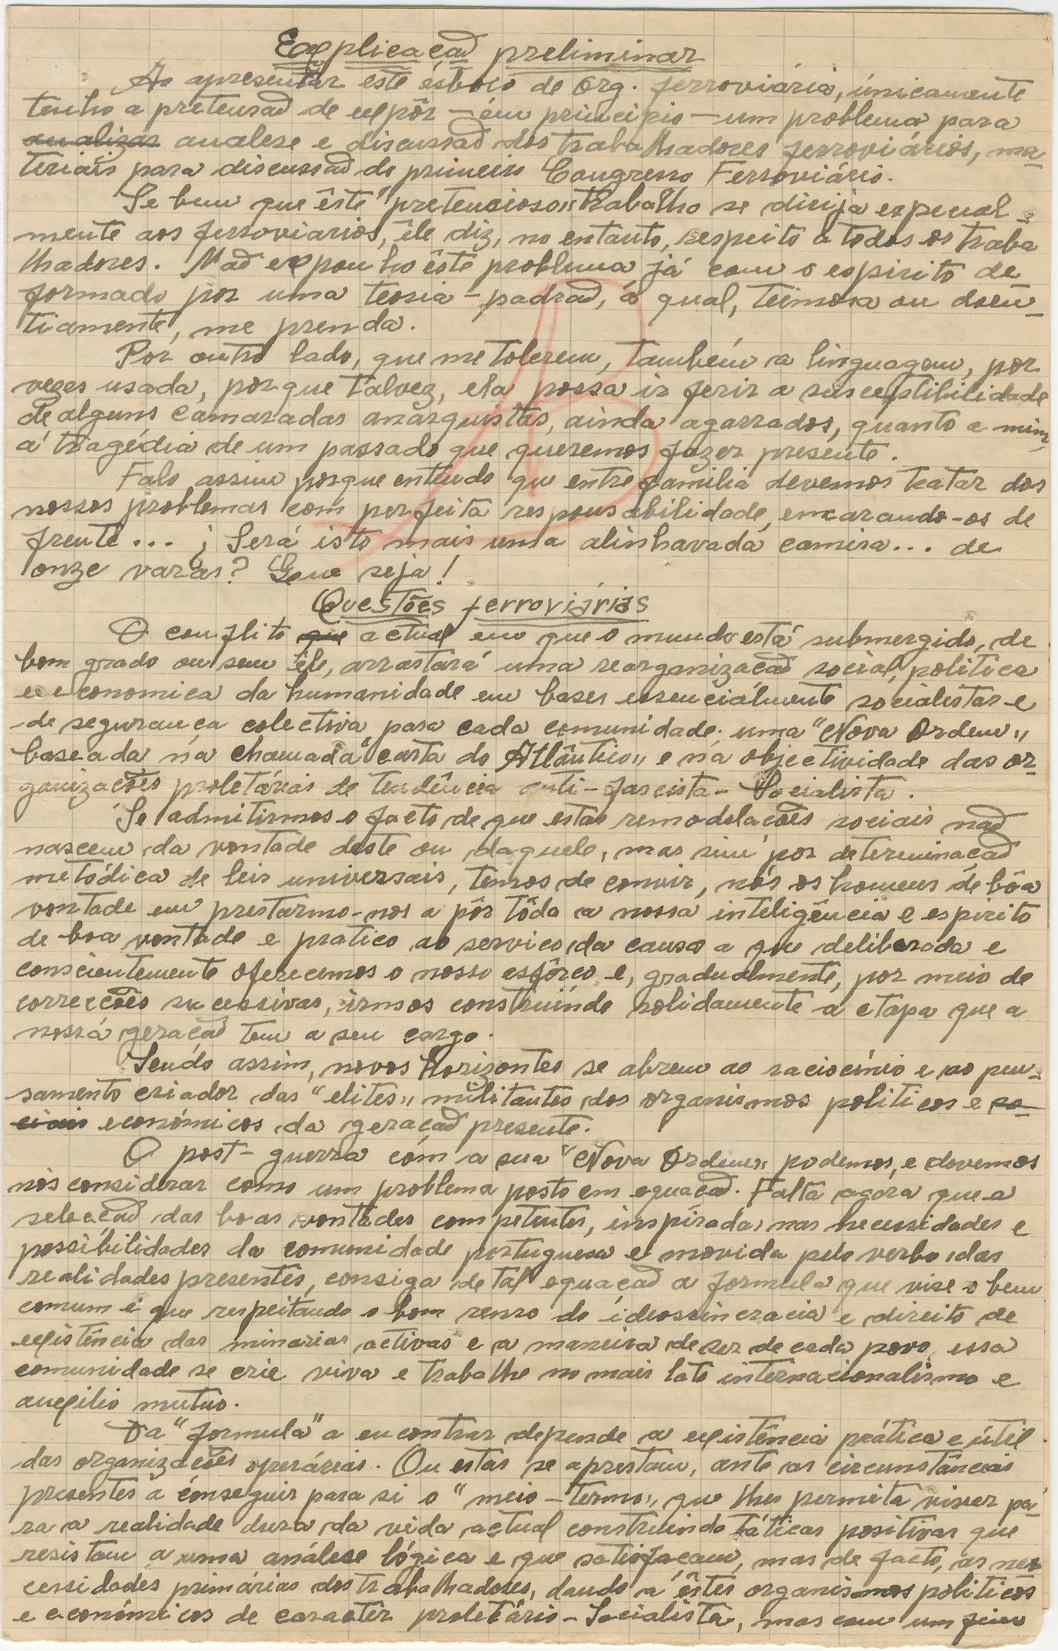 Explicação preliminar
Ao apresentar este ésboço de org. ferroviária, únicamente
tenho a pretensão de expôr — ém principio — um problema para
analizar analese e discussão dos trabalhadores ferroviários, ma-
teriais para discussão do primeiro Congresso Ferroviário.
Se bem que êste "pretencioso" trabalho se dirija especial-
mente aos ferroviarios, êle diz, no entanto, respeito a todos os traba
lhadores. Não exponho êste problema já com o espirito de
formado por uma teoria-padrão, á qual, teimosa ou doen-
tiamente, me prenda.
Por outro lado, que me tolerem, tambêm a linguagem, por
vezes usada, porque talvez, ela possa ir ferir a susceptibilidade
de alguns camaradas anarquistas, ainda agarrados, quanto a mim,
á tragédia de um passado que queremos fazer presente.
Falo assim porque entendo que entre familia devemos tratar dos
nossos problemas com perfeita responsabilidade, encarando-os de
frente... ¿ Será isto mais uma alinhavada camisa... de
onze varas? Que seja!
Questões ferroviárias
O conflito que actual em que o mundo está submergido, de
bom grado ou sem êle, arrastará uma reorganização social, politica
e economica da humanidade em bases essencialmente socialistas e
de segurança colectiva para cada comunidade: uma "Nova Ordem"
baseada na chamada "carta do Atlântico" e na objectividade das or-
ganizações proletárias de tendência anti-fascista-Socialista.
Se admitirmos o facto de que estas remodelações sociais não
nascem da vontade deste ou daquele, mas sim por determinação
metódica de leis universais, temos de convir, nós os homens de bôa
vontade em prestarmo-nos a pôr tôda a nossa inteligência e espirito
de boa vontade e pratico ao serviço da causa a que deliberada e
conscientemente oferecemos o nosso esfôrço e, gradualmente, por meio de
correcções sucessivas, irmos construindo solidamente a etapa que a
nossa geração tem a seu cargo.
Sendo assim, novos Horizontes se abrem ao raciocínio e ao pen-
samento criador das "elites" militantes dos organismos politicos e so-
ciais económicos da geração presente.
O post-guerra com a sua "Nova Ordem" podemos, e devemos
nós considerar como um problema posto em equação. Falta agora que a
selecção das boas vontades competentes, inspirada nas necessidades e
possibilidades da comunidade portuguesa e movida pelo verbo das
realidades presentes, consiga de tal equação a formula que vise o bem
comum e que respeitando o bom senso do ideossincracia e direito de
existência das minorias activas e a maneira de ser de cada povo, essa
comunidade se crie viva e trabalhe no mais lato internacionalismo e
auxilio mutuo.
Da "formula" a encontrar depende a existência prática e útil
das organizações operárias. Ou estas se aprestam, ante as circunstâncias
presentes a conseguir para si o "meio-termo" que lhes permita viver pa-
ra a realidade dura da vida actual construindo táticas positivas que
resistam a uma análese lógica e que satisfaçam, mas de facto, as ne-
cessidades primárias dos trabalhadores, dando a êstes organismos politicos
e económicos de caracter proletário-Socialista, mas com um fim